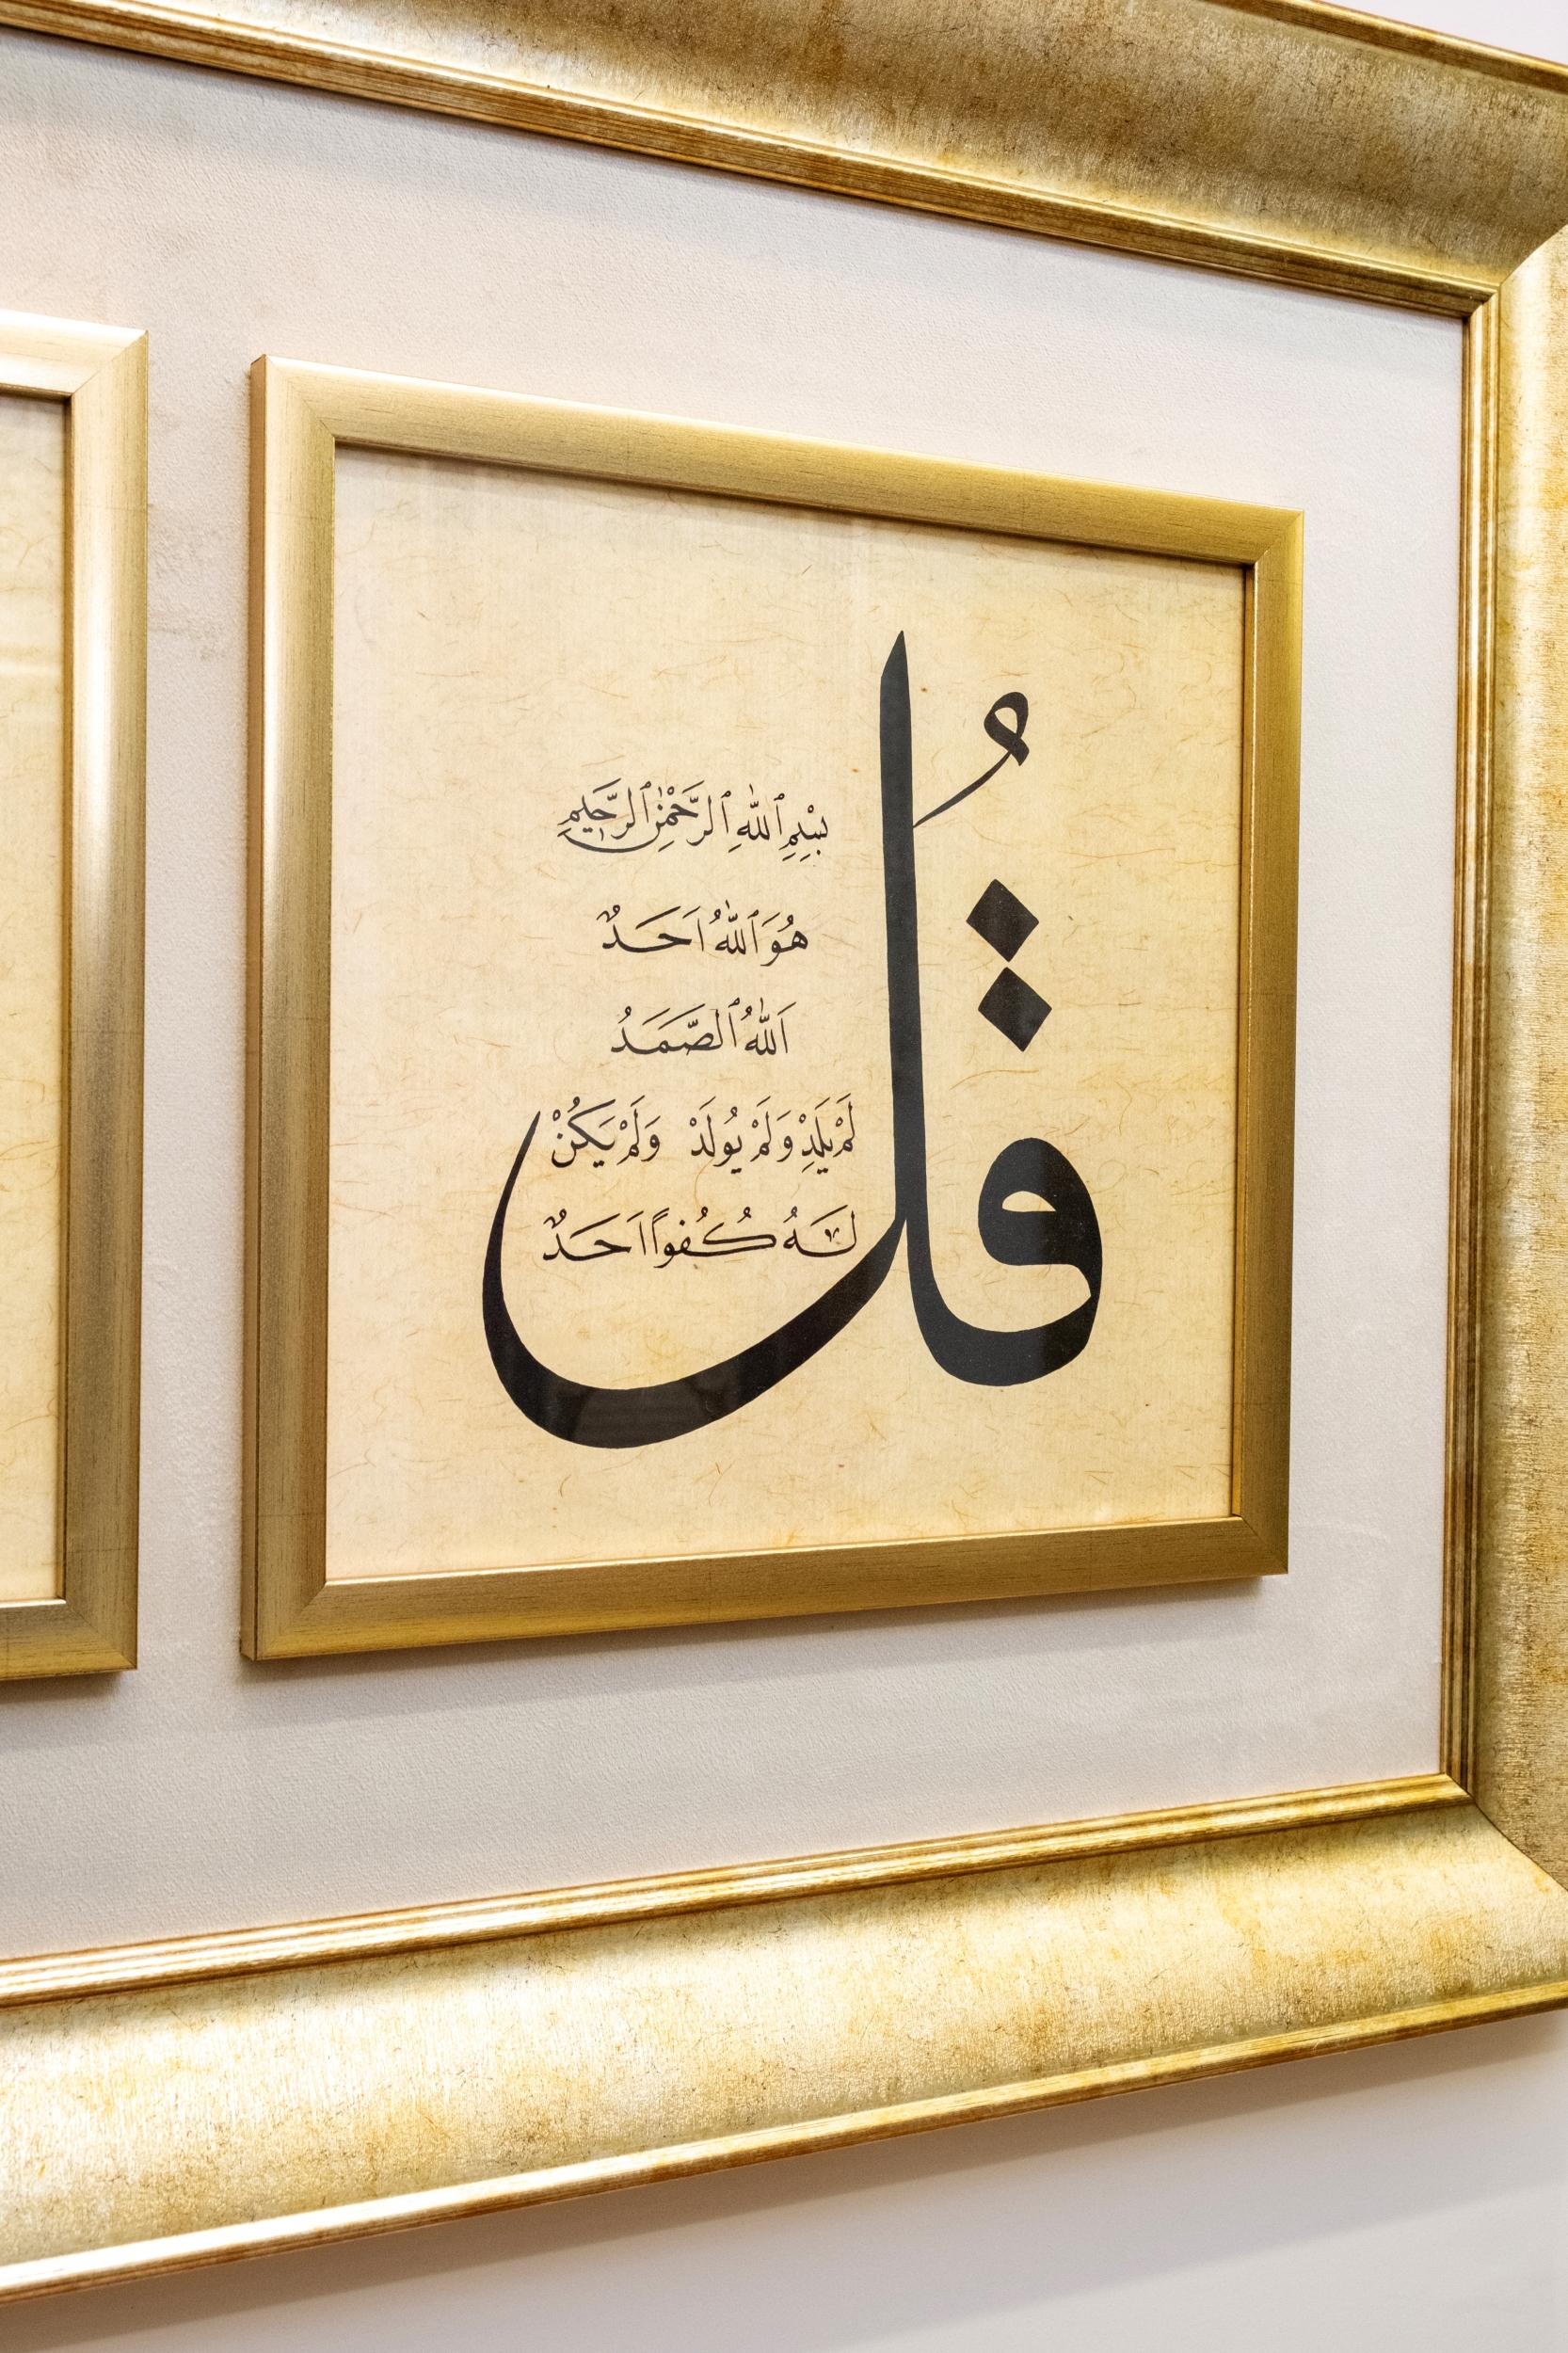 قُل
بِسْمِ ٱللّٰهِ ٱلرَّحْمٰنِ ٱلرَّحِيمِ
هُوَ ٱللّٰهُ اَحَدٌ
اَللّٰهُ ٱلصَّمَدُ
لَمْ يَلِدْ وَلَمْ يُولَدْ وَلَمْ يَكُنْ
لَهُ كُفُواً اَحَدٌ